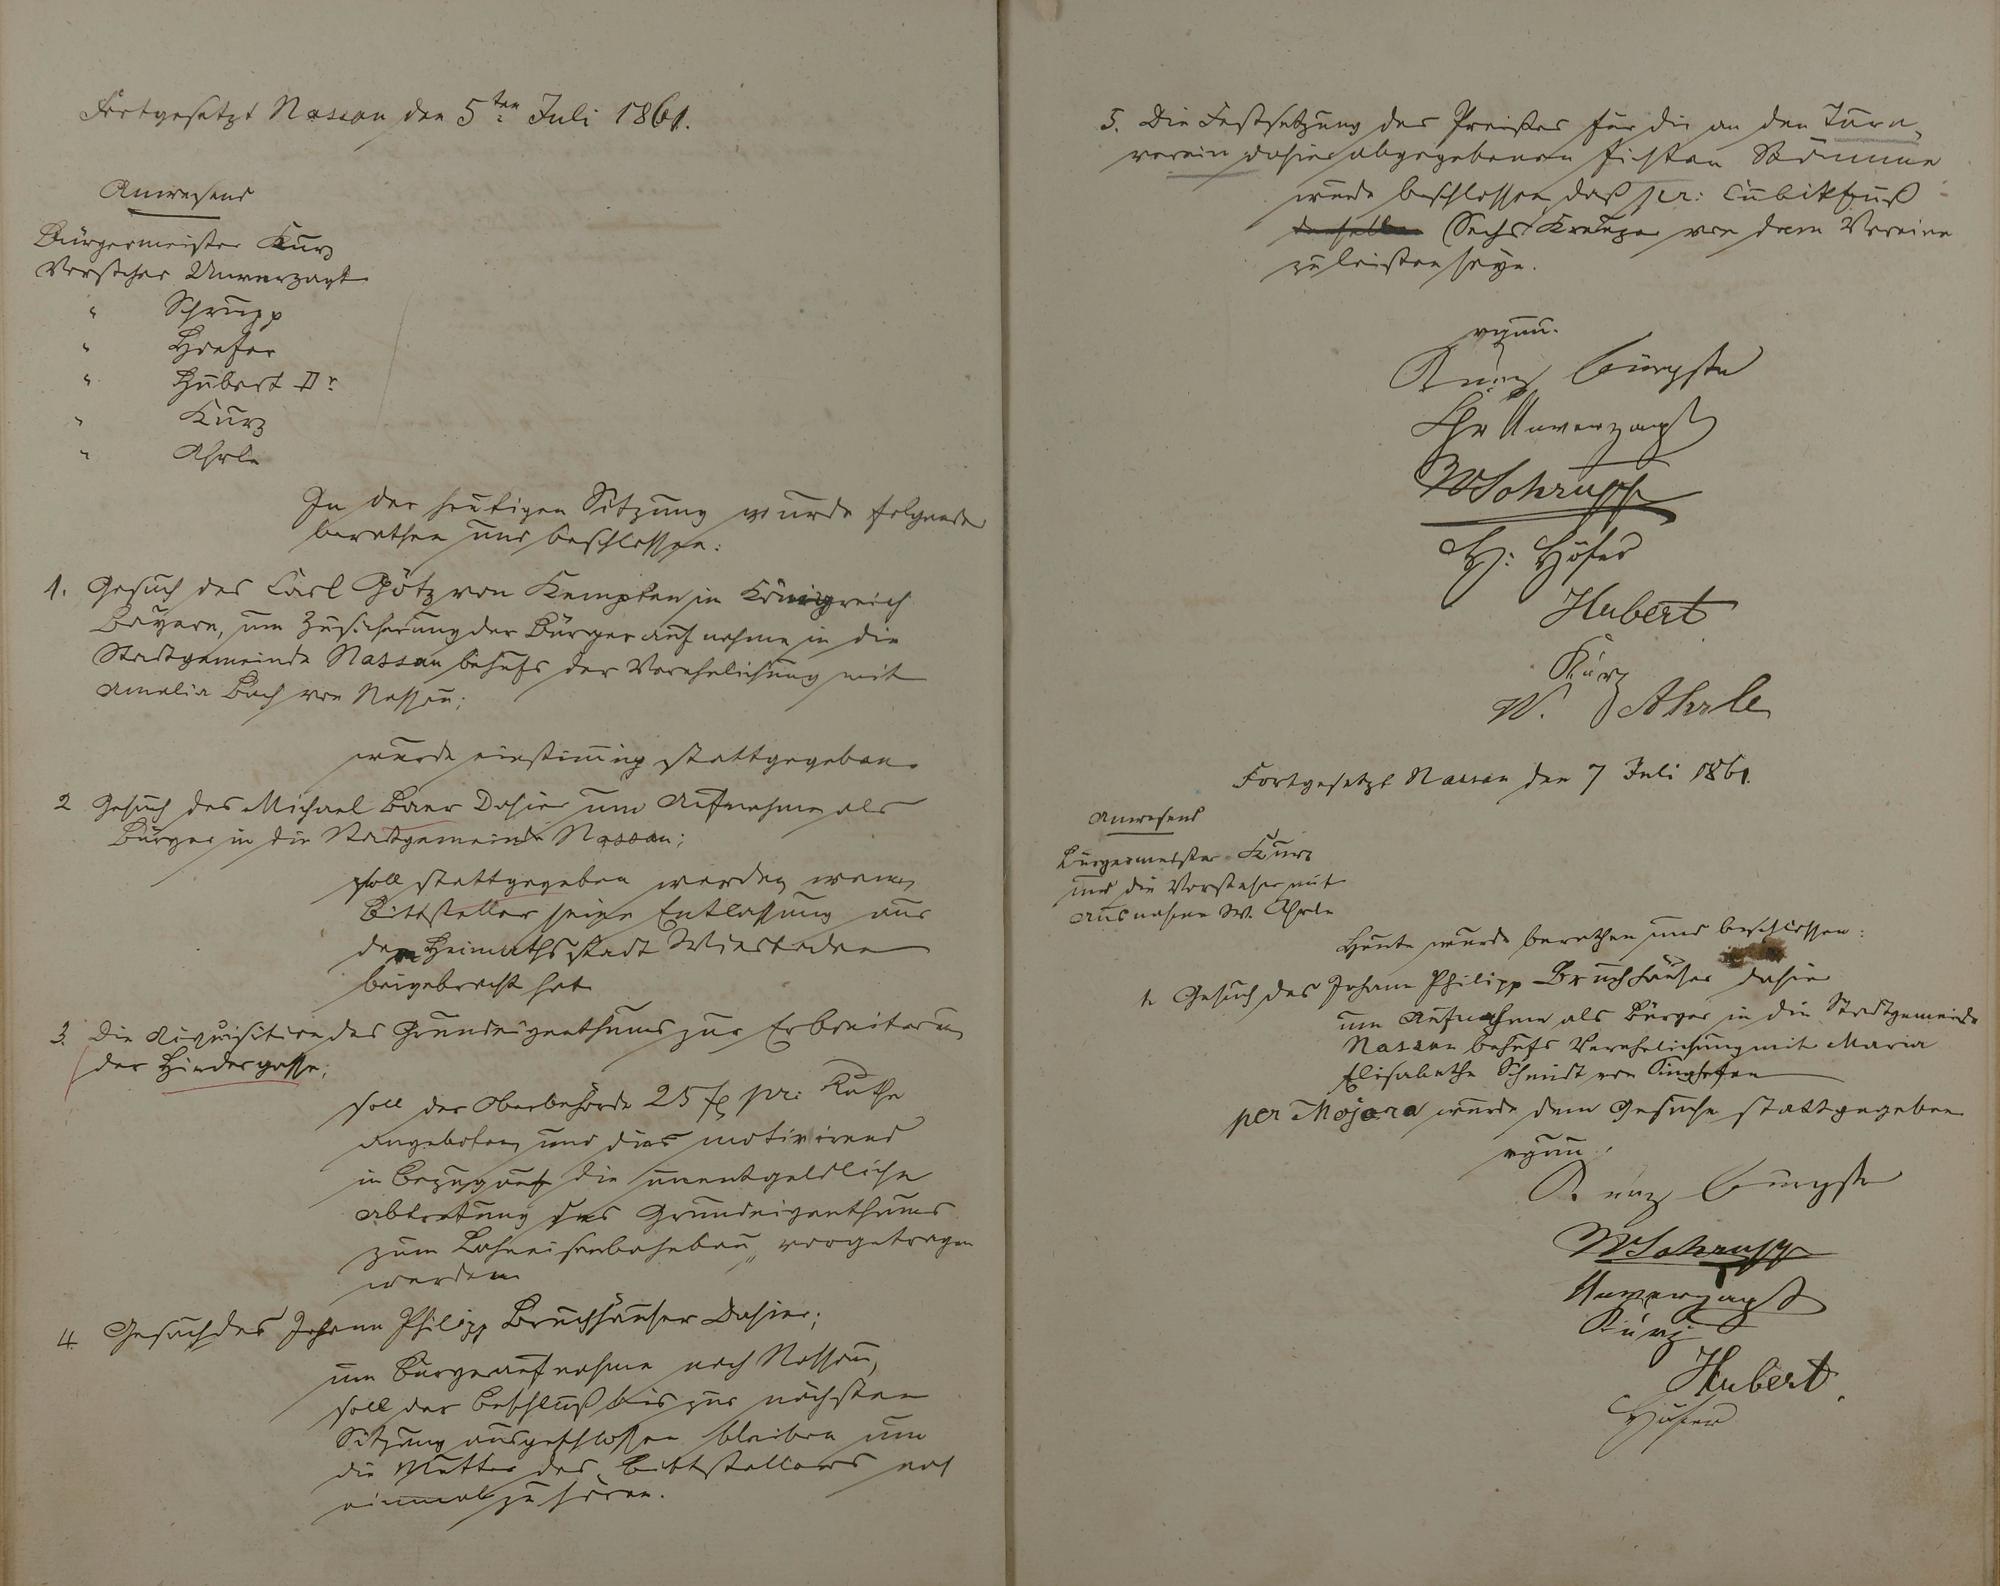 Fortgesetzt Nassau den 5ten Juli 1861.
Anwesend
Bürgermeister Kurz
Vorsteher Unverzagt
" Schrupp
" Hoefer
" Hubert Dr
" Kurz
" Ahrle
In der heutigen Sitzung wurde folgendes
berathen und beschlossen:
1. Gesuch des Carl Götz von Kempten in Königreich
Bayern, um Zusicherung der Bürgeraufnahme in die
Stadtgemeinde Nassau behufs der Verehelichung mit
Amalia Buch von Nassau;
wurde einstimmig stattgegeben.
2 Gesuch des Michael Baer Dahier um Aufnahme als
Bürger in die Stadtgemeinde Nassau;
soll stattgegeben werden, wenn
Bittsteller seine Entlassung aus
der Heimathsstadt Wiesbaden
beigebracht hat
3. Die Aquisition des Grundeigenthums zur Erbreiterung
der Hindergasse;
soll der Oberbehörde 25 fl pr: Ruthe
angeboten und dies motivirend
in Bezug auf die unentgeldliche
Abtretung des Grundeigenthums
zum Lahneisenbahnbau, vorgetragen
werden
4. Gesuch des Johann Philipp Bruchhäuser Dahier;
um Bürgeraufnahme nach Nassau,
soll der Beschluß bis zur nächsten
Sitzung ausgeschlossen bleiben um
die Mutter des Bittstellers noch
einmal zu hören.
5. Die Festsetzung des Preißes für die an den Turn-
verein dahier abgegebenen fichten Stämme
wurde beschlossen, daß pr: Cubikfuß
Sechs Kreuzer von dem Vereine
zu leisten seye.
vgnu.
Kurz Bürgstr
Chr Unverzagt
W Schrupp
H: Höfer
Hubert
Kurz
W. Ahrle
Fortgesetzt Nassau den 7 Juli 1861.
Anwesend
Bürgermeister Kurz
und die Vorsteher mit
Ausnahme W. Ahrle
Heute wurde berathen und beschlossen:
1. Gesuch des Johann Philipp Bruchhäuser dahier
um Aufnahme als Bürger in die Stadtgemeinde
Nassau behufs Verehelichung mit Maria
Elisabetha Schmidt von Singhofen
per Majora wurde dem Gesuche stattgegeben
vgnu.
Kurz Bürgstr
W Schrupp
Unverzagt
Kurz
Hubert.
Höfer